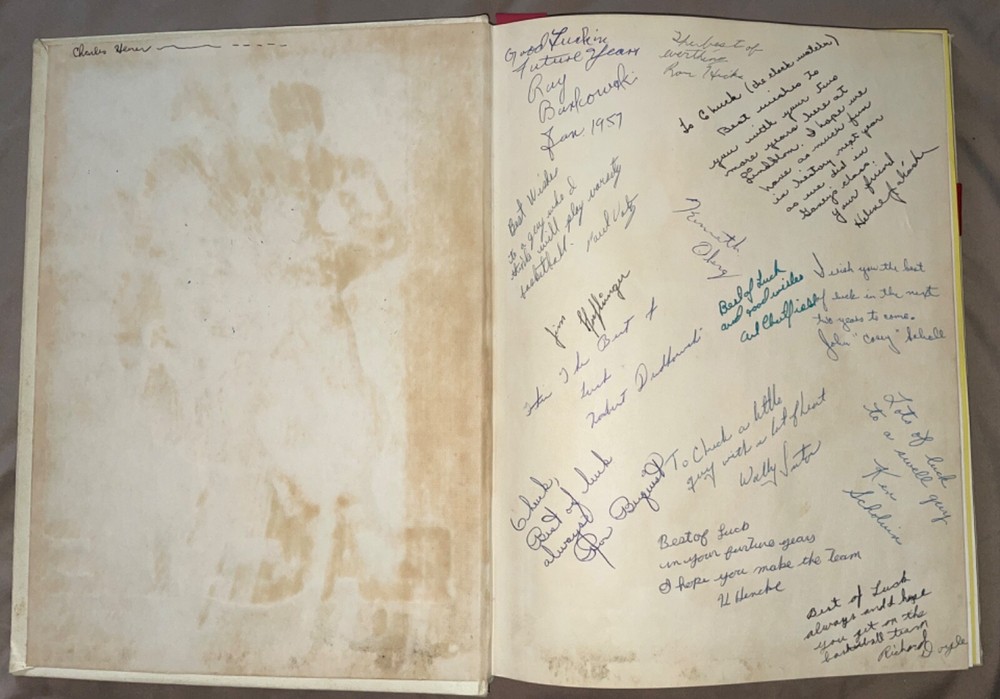 Charles Hener
Good Luck in
Future Years
Ray
Bankowski
Jan. 1957
The best of
everthing
Ron Hicks
To Chuck (the clock watcher)
Best wishes to
you with your two
more years here at
I hope we
have as much fun
in history next year
as we did in
class.
Your friend
Best Wishes
to a guy who I
think will play varsity
basketball.
Paul
Kenneth
Oberg
Best of Luck
and good wishes
Art
I wish you the best
of luck in the next
two years to come.
John "Casey" Schall
Jim Hoffinger
The Best of
Luck
Robert
Lots of luck
to a swell guy
Ken
To Chuck a little
guy with a lot of heart
Wally
Chuck,
Best of luck
always
Ron
Best of Luck
in your furture years
I hope you make the team
Best of Lusk
always and I hope
you get on the
basketball team
Richard Doyle